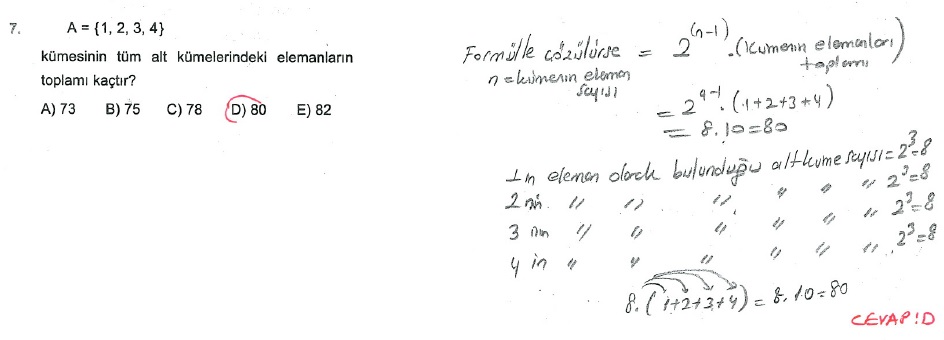 7. A = {1, 2, 3, 4}
kümesinin tüm alt kümelerindeki elemanların
toplamı kaçtır?
A) 73 B) 75 C) 78 D) 80 E) 82
Formülle çözülürse = 2^(n-1) . (kümenin elemanları toplamı)
n = kümenin eleman sayısı
= 2^4-1 . (1+2+3+4)
= 8.10=80
1in eleman olarak bulunduğu altküme sayısı = 2^3=8
2 nin " " " " " " 2^3=8
3 nün " " " " " " 2^3=8
4 ün " " " " " " 2^3=8
8.(1+2+3+4) = 8.10=80
CEVAP:D